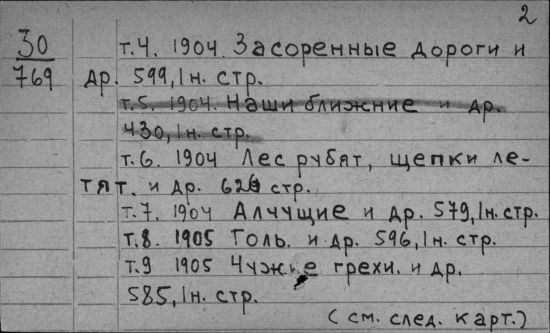 2
30 т.4. 1904. Засоренные дороги и
769 др. 599, 1 н. стр.
т.5. 1904. Наши ближние и др.
430, 1 н. стр.
т.6. 1904 Лес рубят, щепки ле-
тят. и др. 626 стр.
т.7. 1904 Алчущие и др. 579, 1н. стр.
т.8. 1905 Голь. и др. 596, 1 н. стр.
т.9 1905 Чужие грехи. и др.
585, 1 н. стр.
(см. след. карт.)